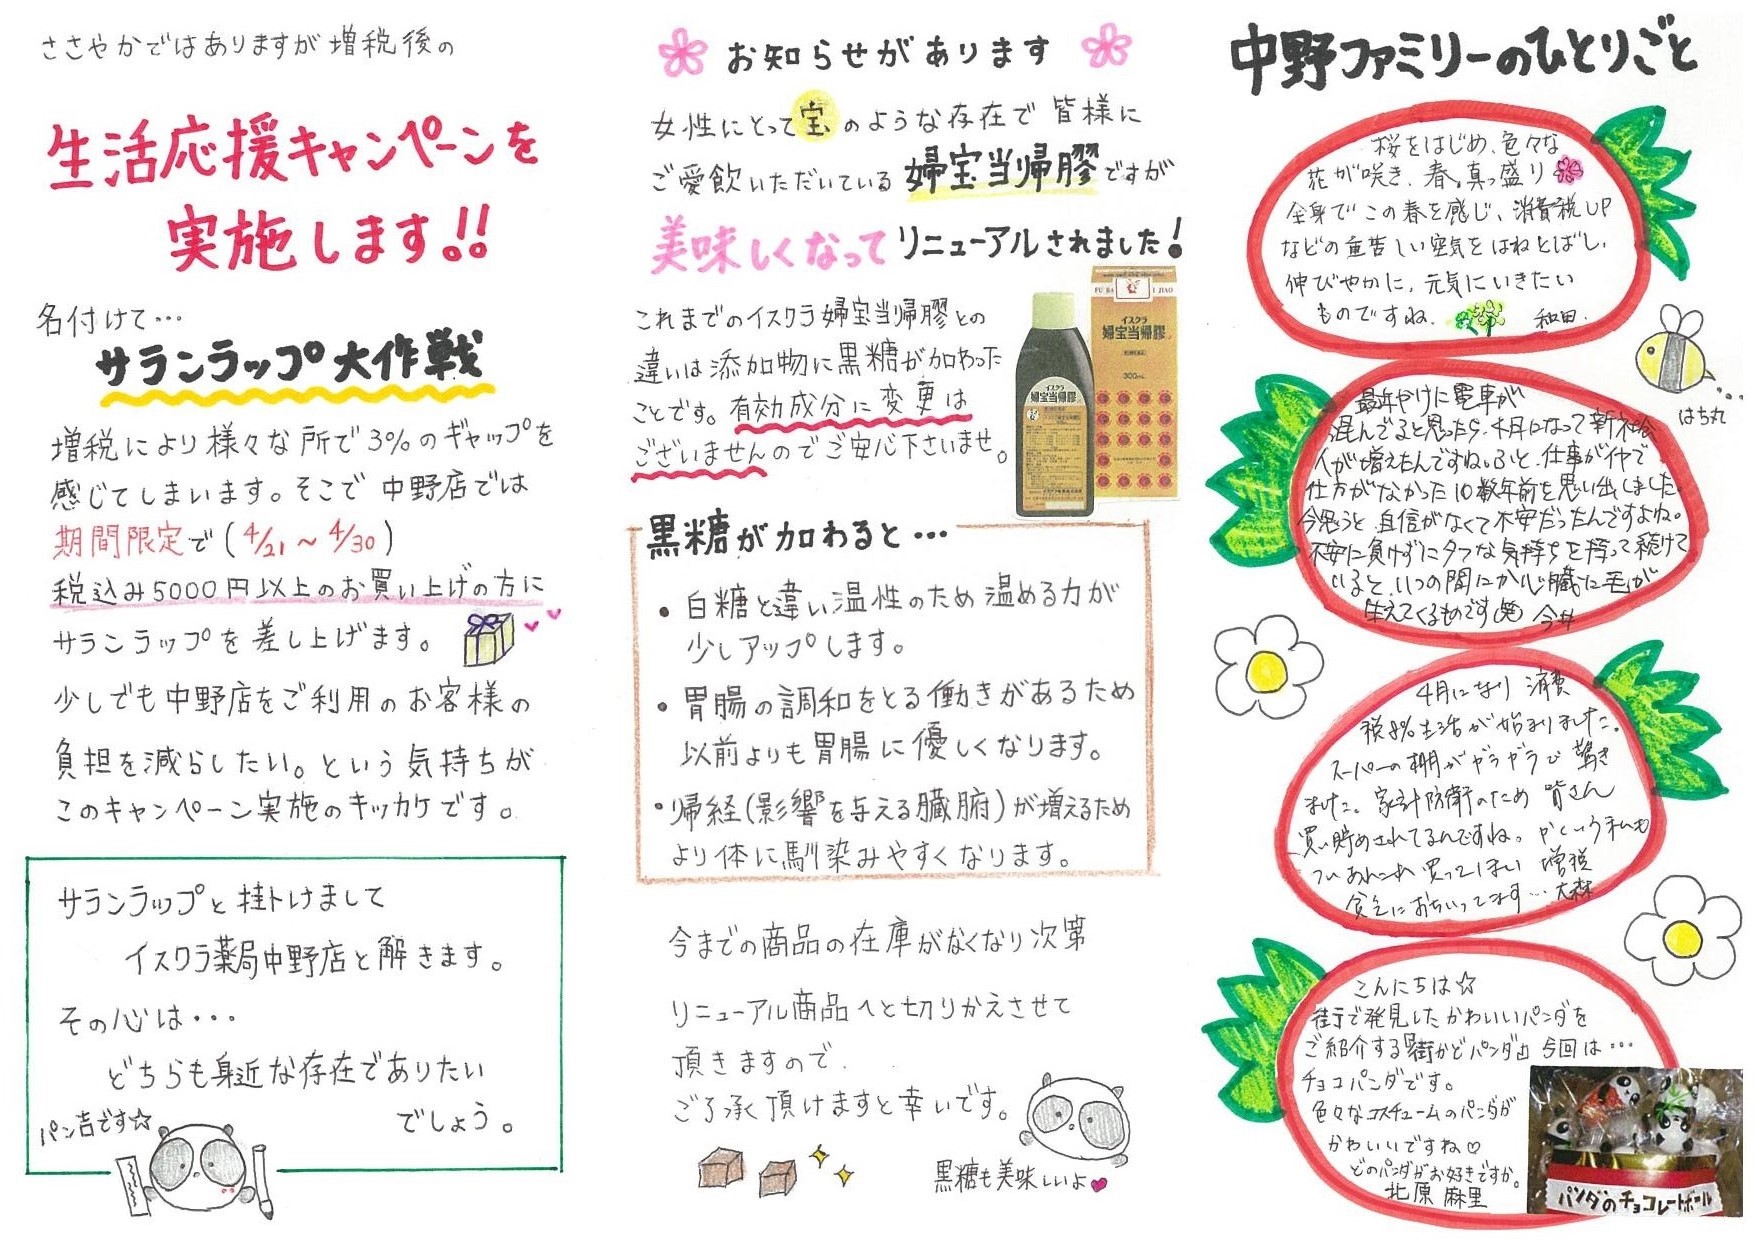 ささやかではありますが増税後の
生活応援キャンペーンを
実施します!!
名付けて…
サランラップ大作戦
増税により様々な所で3%のギャップを
感じてしまいます。そこで中野店では
期間限定で(4/21〜4/30)
税込み5000円以上のお買い上げの方に
サランラップを差し上げます。
少しでも中野店をご利用のお客様の
負担を減らしたい。という気持ちが
このキャンペーン実施のキッカケです。
サランラップと掛けまして
イスクラ薬局中野店と解きます。
その心は…
どちらも身近な存在でありたい
でしょう。
パン吉です☆
お知らせがあります
女性にとって宝のような存在で皆様に
ご愛飲いただいている婦宝当帰膠ですが
美味しくなってリニューアルされました!
これまでのイスクラ婦宝当帰膠との
違いは添加物に黒糖が加わった
ことです。有効成分に変更は
ございませんのでご安心下さいませ。
FU BA
I JIAO
イスクラ
婦宝当帰膠
300mL
イスクラ
婦宝当帰膠
黒糖が加わると…
・白糖と違い温性のため温める力が
少しアップします。
・胃腸の調和をとる働きがあるため
以前よりも胃腸に優しくなります。
・帰経(影響を与える臓腑)が増えるため
より体に馴染みやすくなります。
今までの商品の在庫がなくなり次第
リニューアル商品へと切りかえさせて
頂きますので
ご了承頂けますと幸いです。
黒糖も美味しいよ♥
中野ファミリーのひとりごと
桜をはじめ、色々な
花が咲き、春真っ盛り
全身でこの春を感じ、消費税UP
などの重苦しい空気をはねとばし、
伸びやかに、元気にいきたい
ものですね。
和田.
はち丸
最近やけに電車が
混んでると思ったら、4月になって新社会
人が増えたんですね。ふと、仕事がイヤで
仕方がなかった10数年前を思い出しました
今思うと自信がなくて不安だったんですよね。
不安に負けずにタフな気持ちを持って続けて
いると、いつの間にか心臓に毛が
生えてくるものです 今井
4月になり消費
税8%生活が始まりました。
スーパーの棚がガラガラで驚き
ました。家計防衛のため皆さん
買い貯めされてるんですね。かくいう私も
ついあれこれ買ってしまい増税
貧乏におちいってます… 大森
こんにちは☆
街で発見したかわいいパンダを
ご紹介する『街かどパンダ』今回は…
チョコパンダです。
色々なコスチュームのパンダが
かわいいですね♡
どのパンダがお好きですか。
北原 麻里
パンダのチョコレートボール